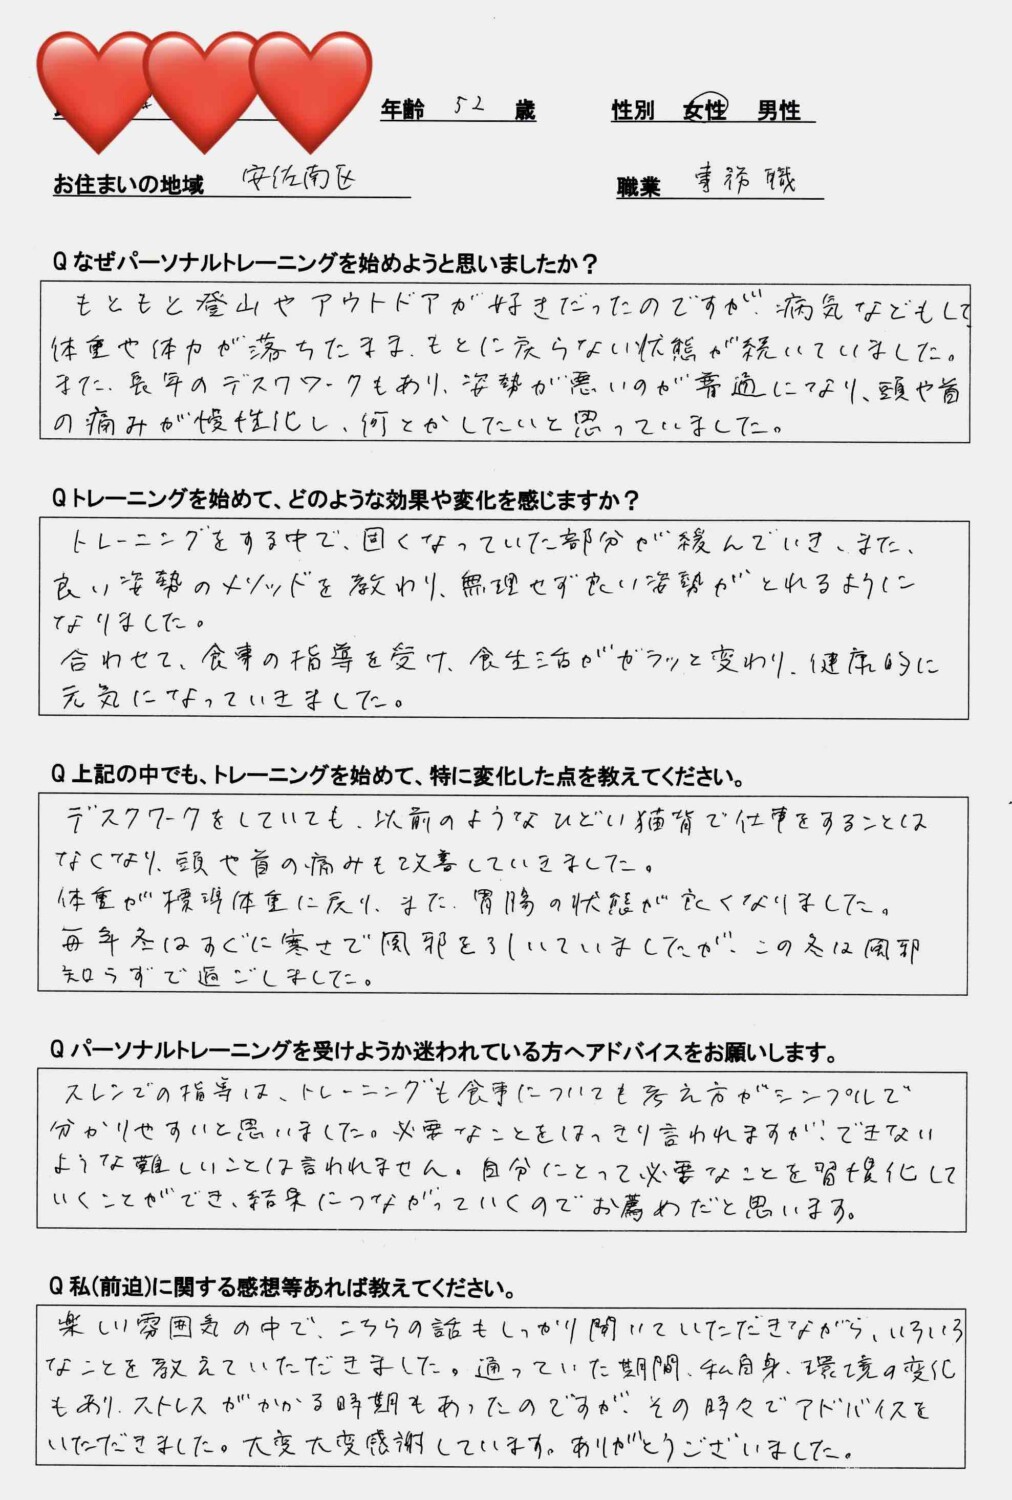 年齢 52 歳 性別 女性 男性
お住まいの地域 安佐南区 職業 事務職
Q なぜパーソナルトレーニングを始めようと思いましたか？
もともと登山やアウトドアが好きだったのですが、病気などもして
体重や体力が落ちたまま、もとに戻らない状態が続いていました。
また、長年のデスクワークもあり、姿勢が悪いのが普通になり、頭や首
の痛みが慢性化し、何とかしたいと思っていました。
Q トレーニングを始めて、どのような効果や変化を感じますか？
トレーニングをする中で、固くなっていた部分が緩んでいき、また、
良い姿勢のメソッドを教わり、無理せず良い姿勢がとれるように
なりました。
合わせて、食事の指導を受け、食生活がガラッと変わり、健康的に
元気になっていきました。
Q 上記の中でも、トレーニングを始めて、特に変化した点を教えてください。
デスクワークをしていても、以前のようなひどい猫背で仕事をすることは
なくなり、頭や首の痛みも改善していきました。
体重が標準体重に戻り、また、胃腸の状態が良くなりました。
毎年冬はすぐに寒さで風邪を引いていましたが、この冬は風邪
知らずで過ごしました。
Q パーソナルトレーニングを受けようか迷われている方へアドバイスをお願いします。
スレンでの指導は、トレーニングも食事についても考え方がシンプルで
分かりやすいと思いました。必要なことをはっきり言われますが、できない
ような難しいことは言われません。自分にとって必要なことを習慣化して
いくことができ、結果につながっていくのでお薦めだと思います。
Q 私(前迫)に関する感想等あれば教えてください。
楽しい雰囲気の中で、こちらの話もしっかり聞いていただきながら、いろいろ
なことを教えていただきました。通っていた期間、私自身、環境の変化
もあり、ストレスがかかる時期もあったのですが、その時々でアドバイスを
いただきました。大変大変感謝しています。ありがとうございました。